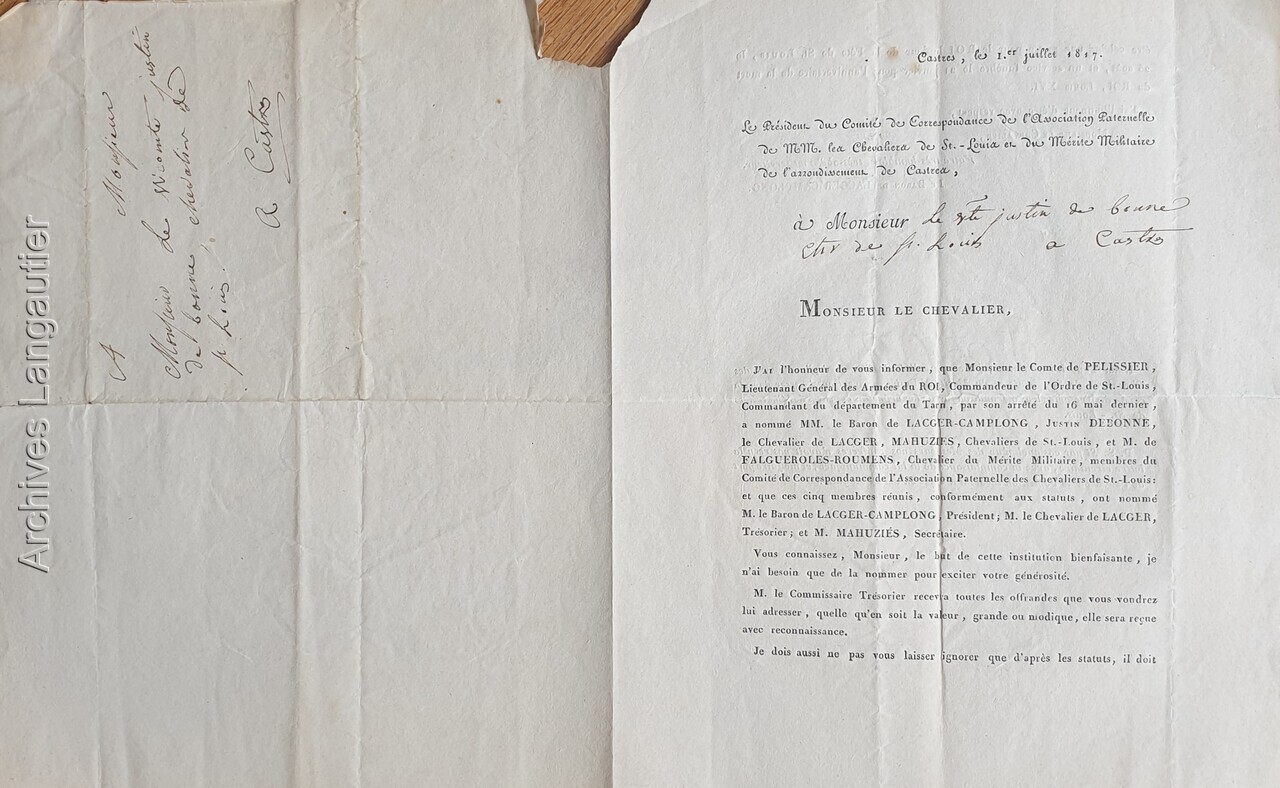 Archives Langautier
A Monsieur
Monsieur le Vicomte justin
de bonne chevalier de
st. Louis.
A Castres
Castres, le 1.er juillet 1817.
Le Président du Comité de Correspondance de l'Association Paternelle
de MM. les Chevaliers de St.-Louis et du Mérite Militaire
de l'arrondissement de Castres,
à Monsieur le vte justin de bonne
chr de st. Louis a Castres
MONSIEUR LE CHEVALIER,
J'AI l'honneur de vous informer, que Monsieur le Comte de PELISSIER,
Lieutenant Général des Armées du ROI, Commandeur de l'Ordre de St.-Louis,
Commandant du département du Tarn, par son arrêté du 16 mai dernier,
a nommé MM. le Baron de LACGER-CAMPLONG, JUSTIN DEBONNE,
le Chevalier de LACGER, MAHUZIÉS, Chevaliers de St.-Louis, et M. de
FALGUEROLES-ROUMENS, Chevalier du Mérite Militaire, membres du
Comité de Correspondance de l'Association Paternelle des Chevaliers de St.-Louis:
et que ces cinq membres réunis, conformément aux statuts, ont nommé
M. le Baron de LACGER-CAMPLONG, Président; M. le Chevalier de LACGER,
Trésorier; et M. MAHUZIÉS, Secrétaire.
Vous connaissez, Monsieur, le but de cette institution bienfaisante, je
n'ai besoin que de la nommer pour exciter votre générosité.
M. le Commissaire Trésorier recevra toutes les offrandes que vous voudrez
lui adresser, quelle qu'en soit la valeur, grande ou modique, elle sera reçue
avec reconnaissance.
Je dois aussi ne pas vous laisser ignorer que d'après les statuts, il doit